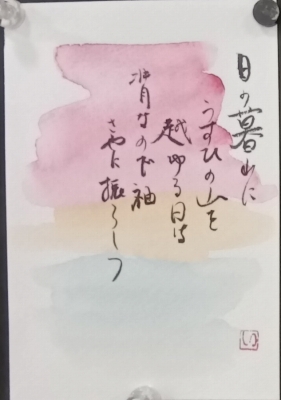 日の暮れに
うすひの山を
越ゆる日は
背なのが袖
さやに振らしつ